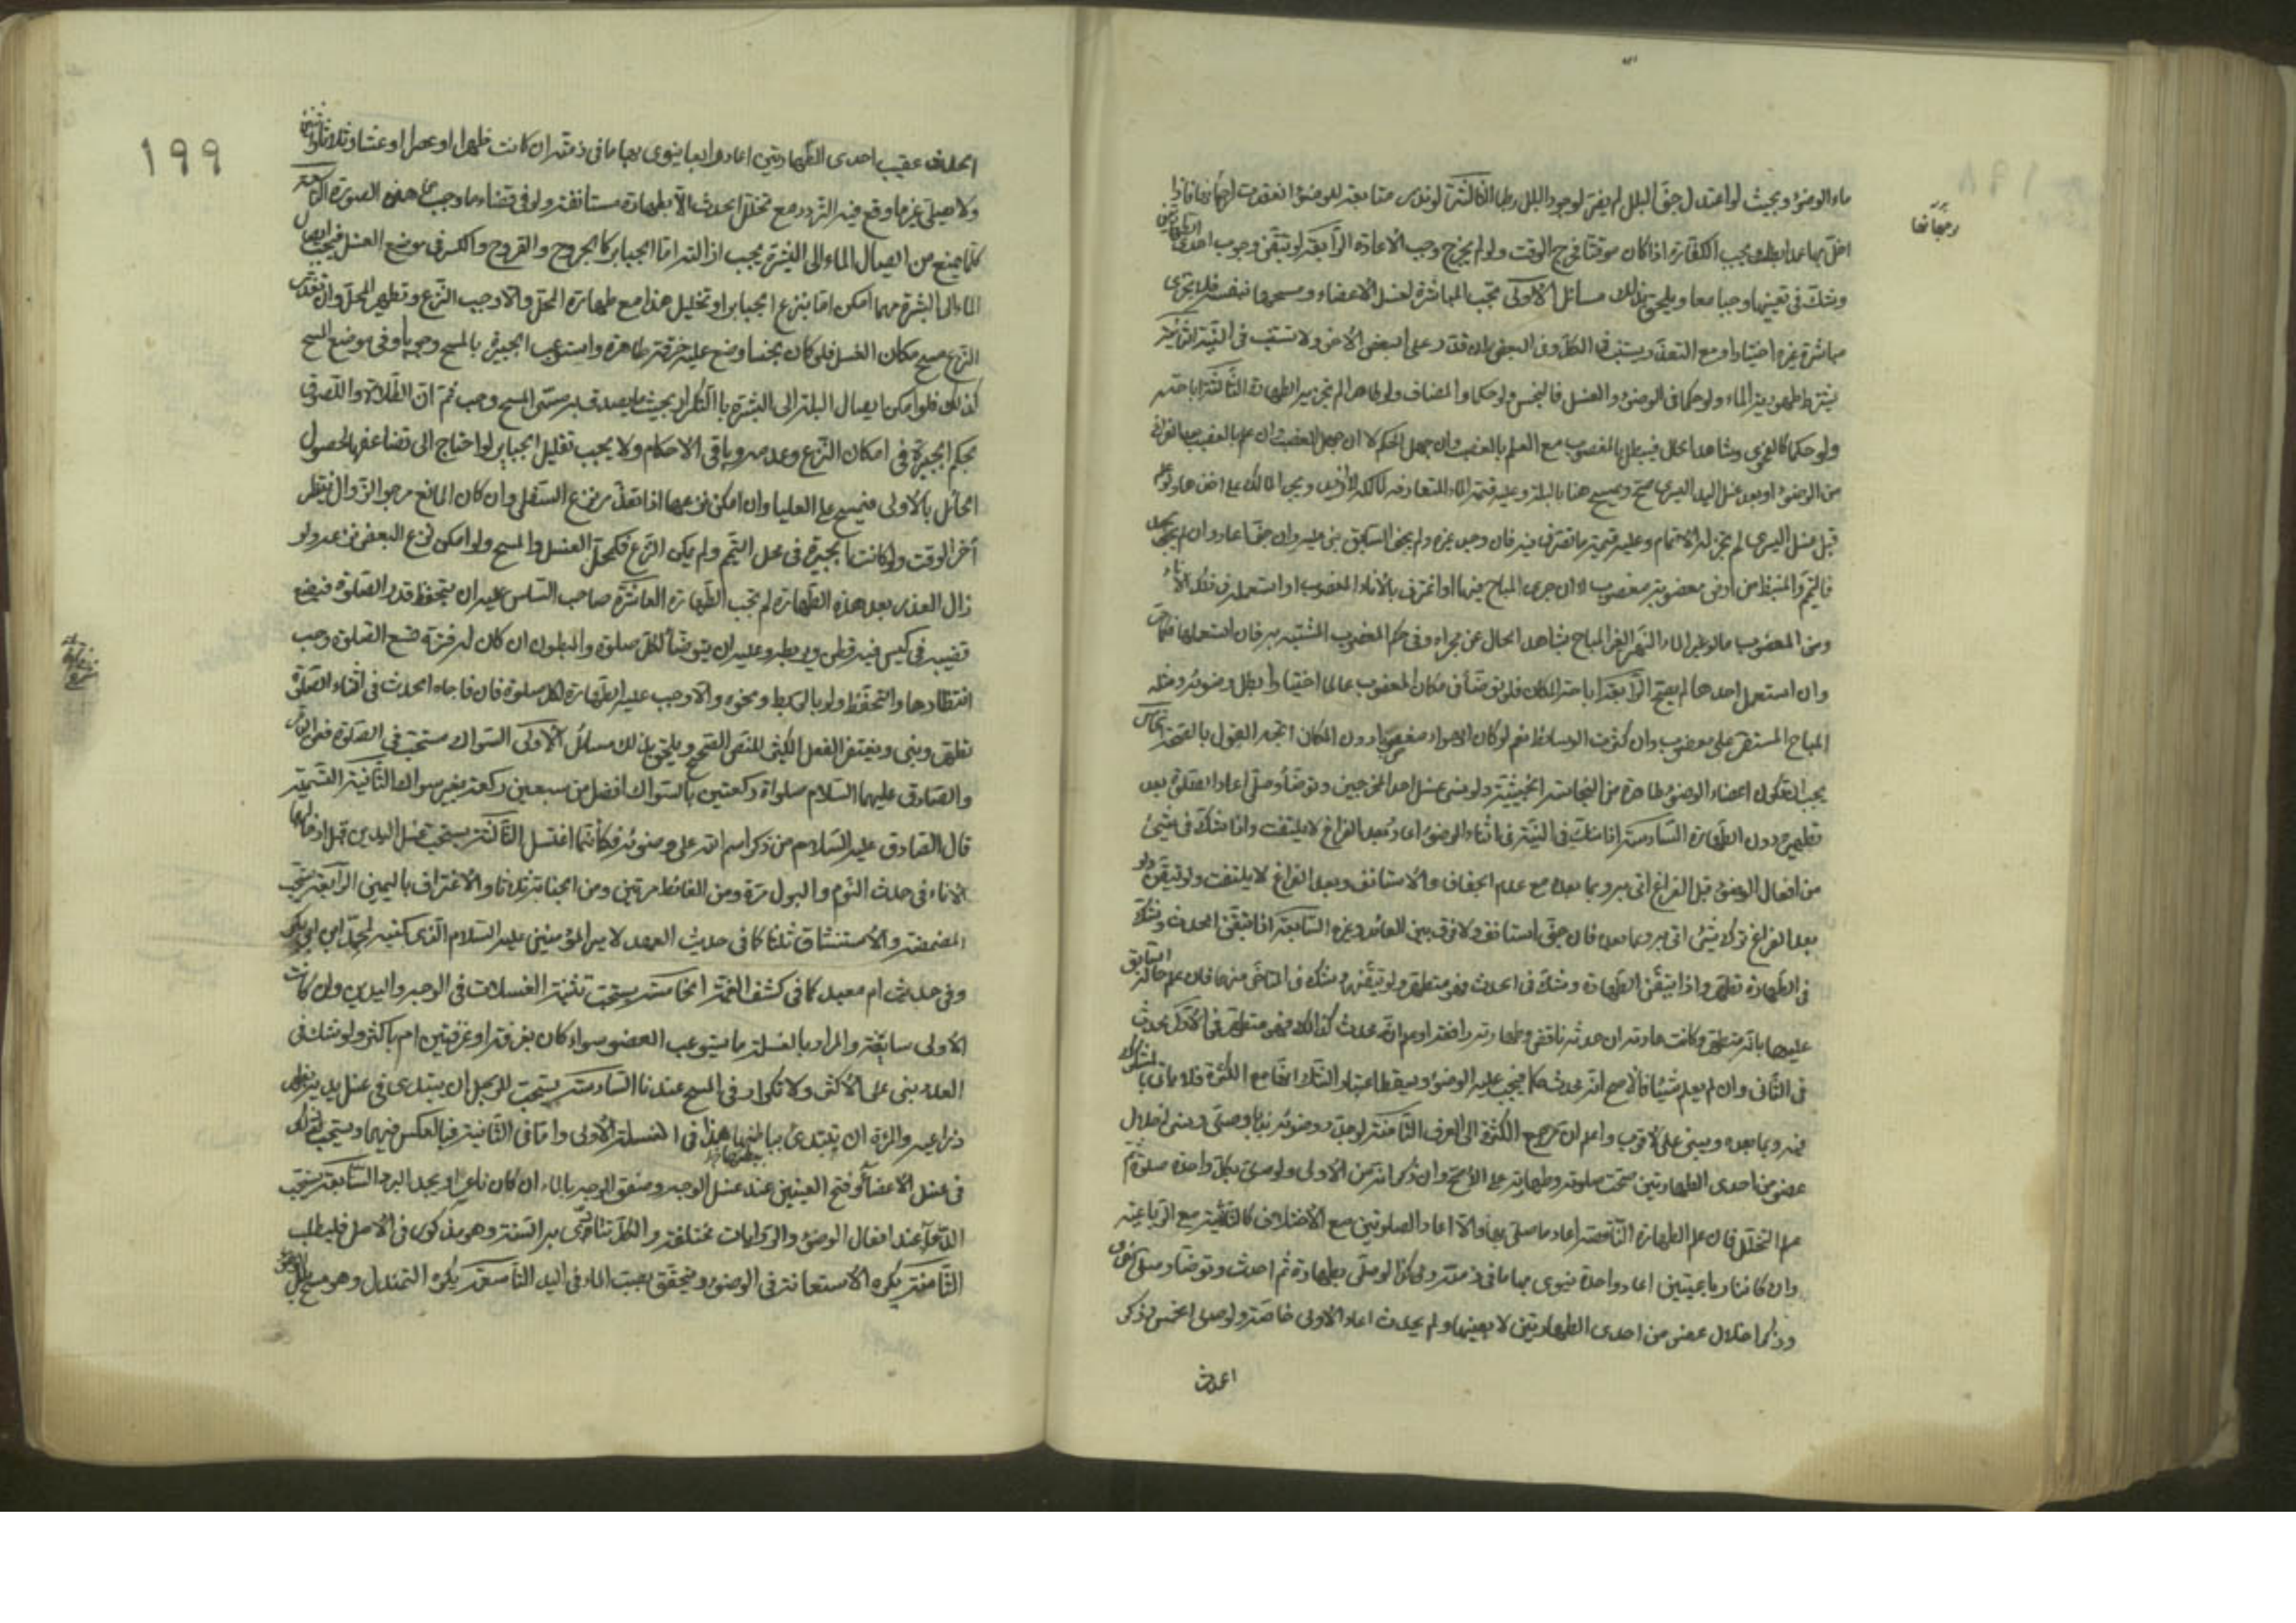 ماء الوضوء وبحيث لو اعتدل جف البلل لم يضر لوجود البلل الثالثة لو نذر متابعة الوضوء انعقدت فاذا
رجحانها
اخل بها عمدا يجب الكفارة اذا كان موقتا وخرج الوقت ولو لم يخرج وجب الاعادة الرابعة لو تيقن وجوب احدى الكفارتين
وشك في تعيينها وجبا معا ويلحق بذلك مسائل الاولى تجب المباشرة لغسل الاعضاء ومسحها بنفسه فلا يجزى
مباشرة غيره اختيارا ومع التعذر يستنيب في الكل وفي البعض ان قدر على البعض الاخر ولا يستنيب في النية الثانية
يشترط طهورية الماء ولو حكما في الوضوء والغسل فالنجس ولو حكما والمضاف ولو طاهرا لم يجز بهما الطهارة الثالثة اباحته
ولو حكما كالفحوى وشاهد الحال فيبطل بالمغصوب مع العلم بالغصب وان جهل الحكم لا ان جهل الغصب وان علم بالغصب بعد الفراغ
من الوضوء او بعد غسل اليد اليسرى صح ويمسح هنا بالبلة وعليه قيمة الماء
قبل غسل اليسرى لم يجز له الاتمام وعليه قيمة ما تصرف فيه فان وجد غيره ولم يجف السابق بنى عليه وان جف اعاد وان لم يجد
فالتيمم من ارض مغصوبة مغصوب الا ان جرى المباح فيها او اغترف بالاناء المغصوب او استعمله في فك الاناء
ومن المغصوب ما لو غير الماء النهر الغير المباح بشاهد الحال عن مجراه وفي حكم المغصوب المشتبه به فان استعملها
وان استعمل احدها لم يصح الرابعة اباحة المكان فلو توضأ في مكان المغصوب عالما اختيارا بطل وضوئه ومثله
المباح المستقر على مغصوب وان كثرت الوسائط نعم لو كان الهواء مغصوبا دون المكان اتجه القول بالصحة الخامس
يجب ان تكون اعضاء الوضوء طاهرة من النجاسة الخبيثة ولو نسي غسل احد المخرجين وتوضأ وصلى اعاد الصلوة بعد
تطهيره دون الطهارة السادسة اذا شك في النية في اثناء الوضوء اعاد وبعد الفراغ لا يلتفت واذا شك في شيئ
من افعال الوضوء قبل الفراغ اتى به وبما بعده مع عدم الجفاف والا استانف وبعد الفراغ لا يلتفت ولو تيقن ولو
بعد الفراغ ترك شيئ اتى به وبما بعده فان جف استانف ولا فرق بين العائد وغيره السابعة اذا تيقن الحدث وشك
في الطهارة تطهر واذا تيقن الطهارة وشك في الحدث فهو متطهر ولو تيقنهما وشك في المتاخر منهما فان علم حالته السابق
عليهما بانه متطهر وكانت عادته ان حدثه ناقض وطهارته رافعة او علم انه محدث كذلك فهو متطهر في الاول محدث
في الثاني وان لم يعلم شيئا فالاصح انه محدث حكما فيجب عليه الوضوء ويسقط اعتبار الشك اتفاقا مع الكثرة فلا ياتي بالمشكوك
فيه وبما بعده ويبنى على الاقرب واعلم ان مرجع الكثرة الى العرف الثامنة لو جدد وضوئه ندبا وصلى ونسي اخلال
عضو من احدى الطهارتين صحت صلوته وطهارته على الاصح وان ذكر انه من الاولى ولو صلى بكل واحدة صلوة ثم
علم التخلل فان علم الطهارة الناقصة اعاد ما صلى بها والا اعاد الصلوتين مع الاختلاف كالثنائية مع الرباعية
وان كانتا رباعيتين اعاد واحدة ينوى بها ما في ذمته وكذا لو صلى بطهارة ثم احدث وتوضأ وصلى اخرى
وذكر اختلال عضو من احدى الطهارتين لا بعينها ولم يحدث اعاد الاولى خاصة ولو صلى الخمس وذكر
الحدث
١٩٩
الحدث عقيب احدى الطهارتين اعاد اربعا ينوى بها ما في ذمته ان كانت ظهرا او عصرا او عشاء وثلاثا واثنتين
ولا يصلى غيرها وقع فيه التردد مع تخلل الحدث الا بطهارة مستانفة ولو في قضاء ما وجب هذه الصورة التاسعة
كلما يمنع من ايصال الماء الى البشرة يجب ازالته اما الجبائر كالجروح والقروح والكسر في موضع الغسل فيجب ايصال
الماء الى البشرة مهما امكن اما بنزع الجبائر او تخليل هذا مع طهارة المحل والا وجب النزع وتطهير المحل وان تعذر
النزع مسح مكان الغسل فلو كان نجسا وضع عليه خرقة طاهرة واستوعب الجبيرة بالمسح وجوبا وفي موضع المسح
كذلك فلو امكن ايصال البلة الى البشرة بالتكرار بحيث ما يصدق به مسمى المسح وجب ثم ان الطلاء واللصوق
بحكم الجبيرة في امكان النزع وعدمه وباقي الاحكام ولا يجب تقليل الجبائر لو احتاج الى تضاعفها لحصول
الحائل بالاولى فيمسح على العليا وان امكن نزعها اذا تعذر نزع السفلى وان كان المانع مرجو الزوال فينتظر
آخر الوقت ولو كانت الجبيرة في محل التيمم ولم يمكن النزع فكمحل الغسل والمسح ولو امكن نزع البعض نزعه ولو
زال العذر بعد هذه الطهارة لم تجب الطهارة العاشرة صاحب السلس عليه ان يتحفظ قدر الصلوة فيضع
قضيبه في كيس فيه قطن ويربطه وعليه ان يتوضأ لكل صلوة والمبطون ان كان له فترة تسع الصلوة وجب
انتظارها والتحفظ ولو بالربط ونحوه والا وجب عليه الطهارة لكل صلوة فان فاجاه الحدث في اثناء الصلوة
تطهر وبنى ويغتفر الفعل الكثير للنص الصحيح ويلحق بذلك مسائل الاولى السواك مستحب في الصلوة فعن الباقر
والصادق عليهما السلام صلوة ركعتين بالسواك افضل من سبعين ركعة بغير سواك الثانية التسمية
قال الصادق عليه السلام من ذكر اسم الله على وضوئه فكأنما اغتسل الثالثة يستحب غسل اليدين قبل ادخالهما
الاناء في حدث النوم والبول مرة ومن الغائط مرتين ومن الجنابة ثلاثا والاغتراف باليمين الرابعة يستحب
المضمضة والاستنشاق ثلثا كما في حديث العهد لامير المؤمنين عليه السلام الذي كتبه لمحمد ابن ابي بكر
وفي حديث ام معبد كما في كشف الغمة الخامسة يستحب تثنية الغسلات في الوجه واليدين وان كانت
الاولى سابغة والمراد بالغسلة ما يستوعب العضو سواء كان بغرفة او غرفتين ام باكثر ولو شك في
العدد بنى على الاكثر ولا تكرار في المسح عندنا السادسة يستحب للرجل ان يبتدى في غسل يديه بظهر
ذراعيه والمرءة ان تبتدئ بباطنهما هذا في الغسلة الاولى واما في الثانية فبالعكس فيهما ويستحب
في غسل الاعضاء وفتح العينين عند غسل الوجه وصفق الوجه بالماء ان كان ناعسا او يجد البرد السابعة يستحب
الدعاء عند افعال الوضوء والروايات مختلفة والكل تتادى به السنة وهو مذكور في الاصل فليطلب
الثامنة يكره الاستعانة في الوضوء ويتحقق بصب الماء في اليد التاسعة يكره التمندل وهو مسح بلل الوضوء